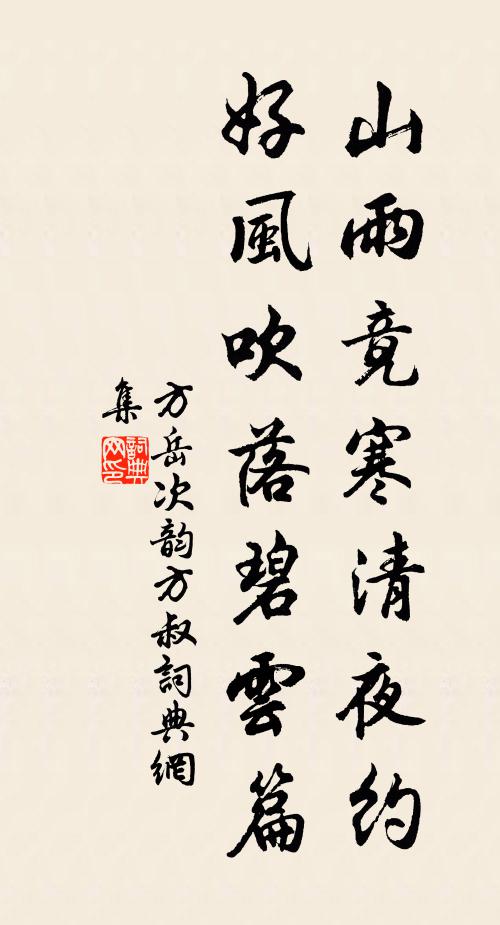 山雨竟寒清夜約
好風吹落碧雲篇
方岳次韵方叔詞典網
集
詞典網印